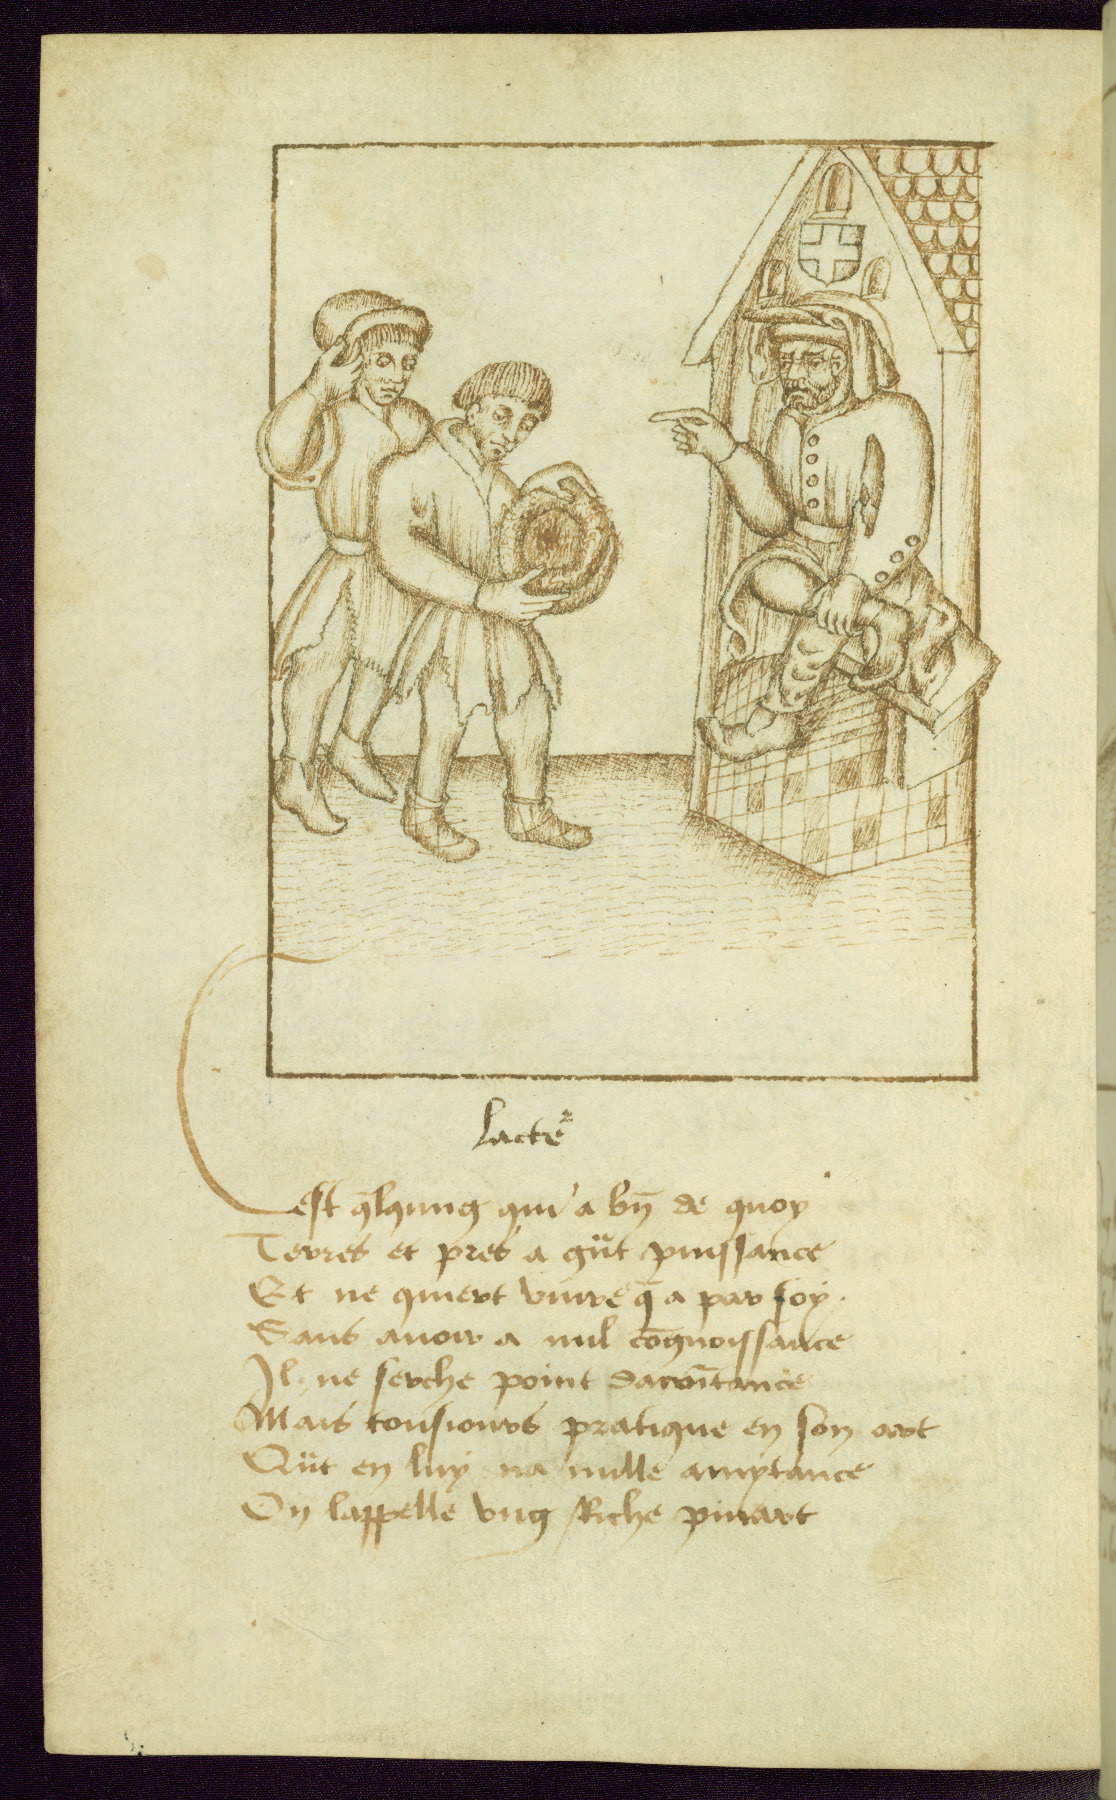 Lacteur
Cest q̄lquug qui a bn̄ de quoy
Terres et pres a gūt puissance
Et ne quiert viure q̄ a par soy
Sans auoir a nul cōgnoissance
Il ne serche point dacoītance
Mais tousiours pratique en son art
Qūt en luy na nulle amytance
On lappelle vng Riche